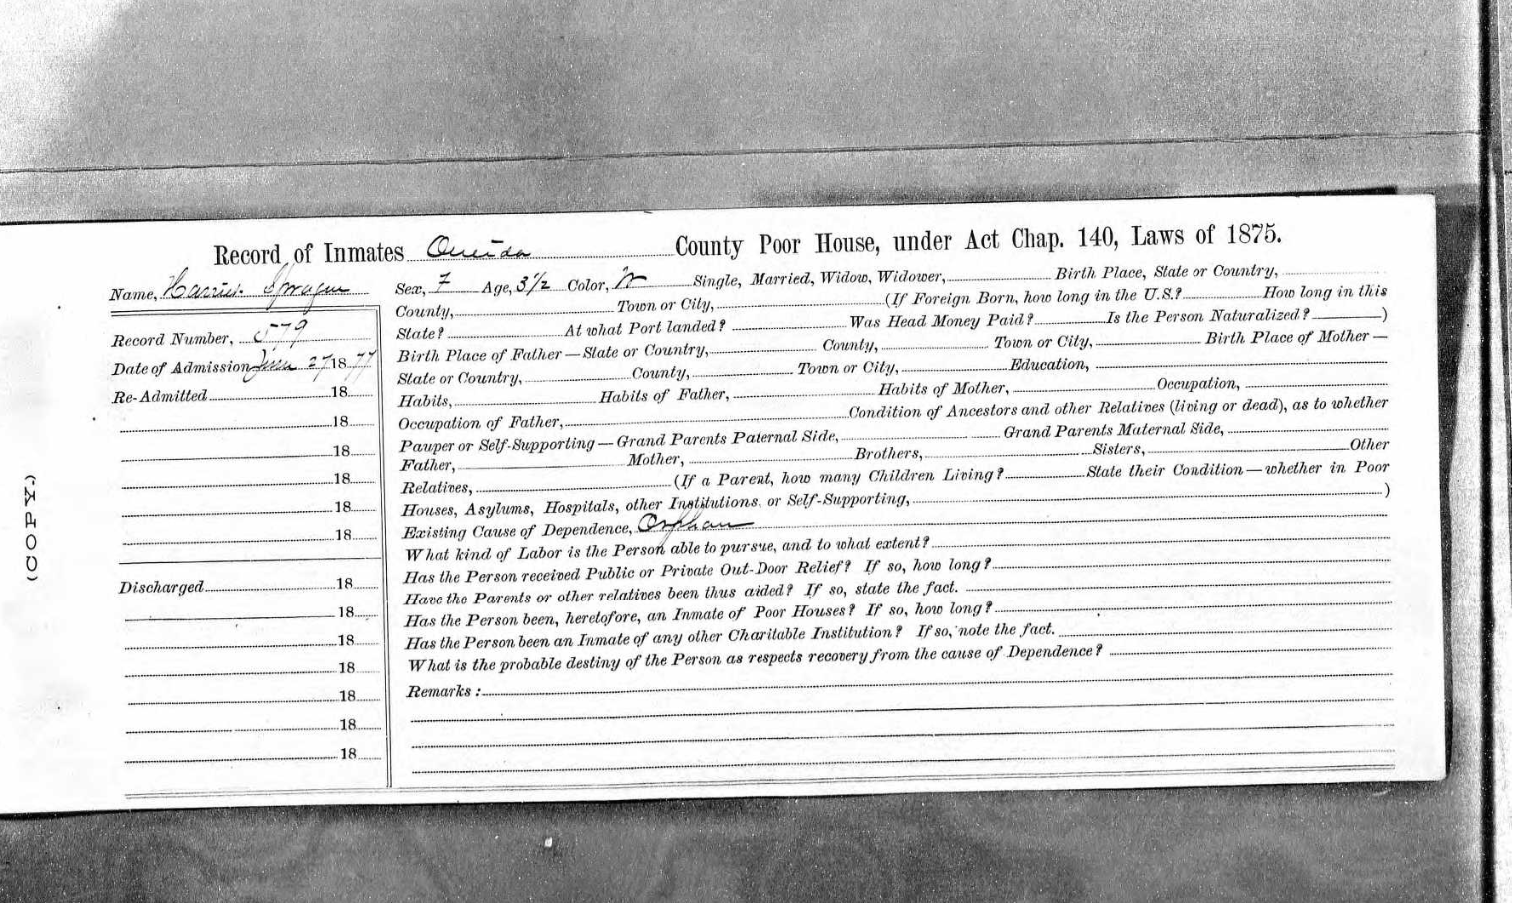 Record of Inmates Oneida County Poor House, under Act Chap. 140, Laws of 1875.
Name, Harriet Sprague
Record Number, 579
Date of Admission June 27 1877
Re-Admitted 18
18
18
18
18
18
Discharged 18
18
18
18
18
18
18
Sex, F Age, 3 1/2 Color, W Single, Married, Widow, Widower, Birth Place, State or Country,
County, Town or City, (If Foreign Born, how long in the U.S.? How long in this
State? At what Port landed? Was Head Money Paid? Is the Person Naturalized? )
Birth Place of Father—State or Country, County, Town or City, Birth Place of Mother—
State or Country, County, Town or City, Education,
Habits, Habits of Father, Habits of Mother, Occupation,
Occupation of Father, Condition of Ancestors and other Relatives (living or dead), as to whether
Pauper or Self-Supporting—Grand Parents Paternal Side, Grand Parents Maternal Side,
Father, Mother, Brothers, Sisters, Other
Relatives, (If a Parent, how many Children Living? State their Condition—whether in Poor
Houses, Asylums, Hospitals, other Institutions, or Self-Supporting, )
Existing Cause of Dependence, Orphan
What kind of Labor is the Person able to pursue, and to what extent?
Has the Person received Public or Private Out-Door Relief? If so, how long?
Have the Parents or other relatives been thus aided? If so, state the fact.
Has the Person been, heretofore, an Inmate of Poor Houses? If so, how long?
Has the Person been an Inmate of any other Charitable Institution? If so, note the fact.
What is the probable destiny of the Person as respects recovery from the cause of Dependence?
Remarks: